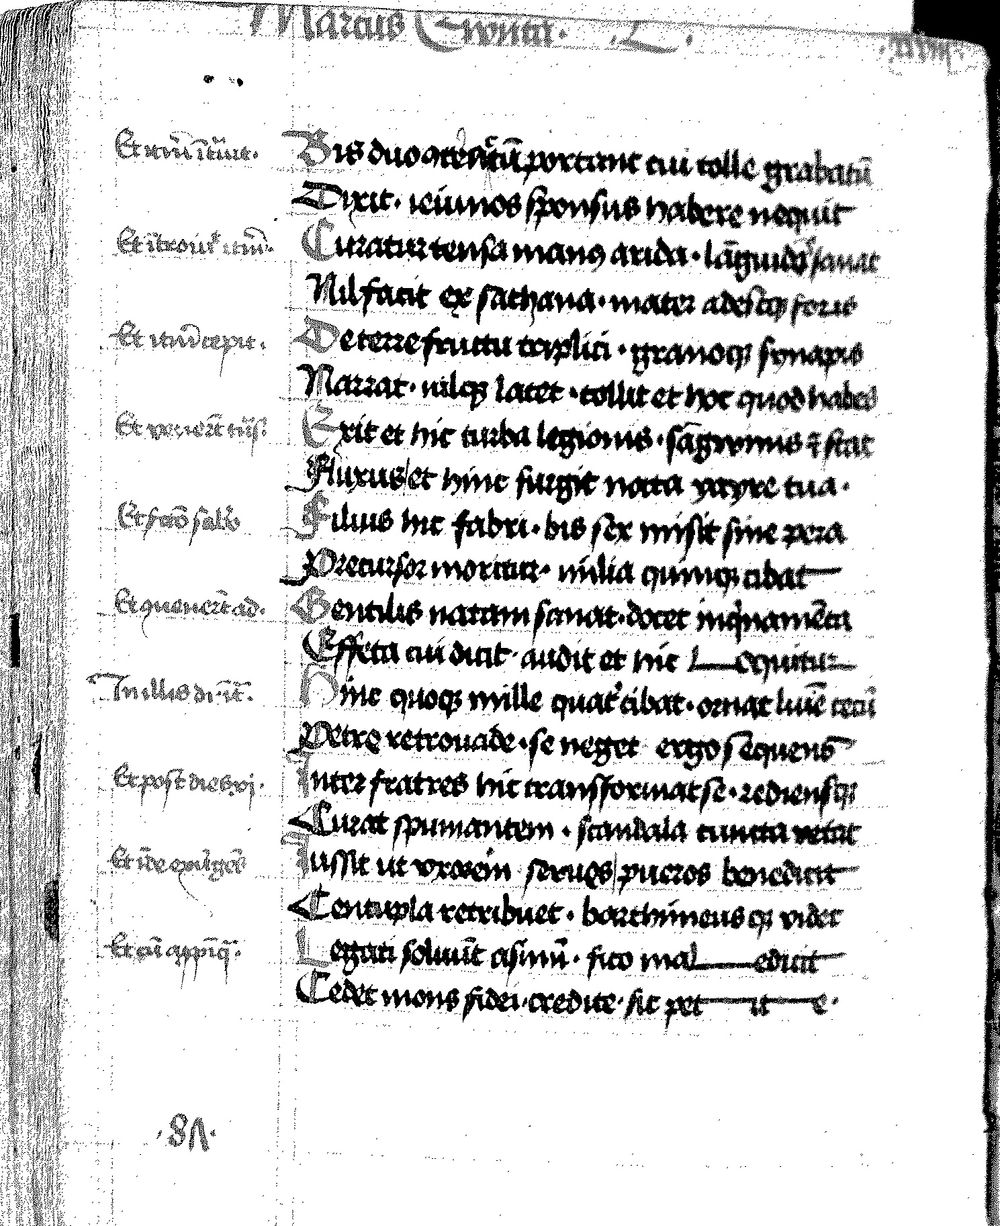 Marcus
Et itrū ītrāuit. Bis duo portant cui tolle grabatū
Dixit · ieiunos sponsus habere nequit
Et ītroiuit itrū. Curatur tensa manꝰ arida · lāguida sanat
Nil facit ex sathana · mater adestqꝫ foris
Et itrū cepit. De terre fructu triplici · granoqꝫ synapis
Narrat · nilqꝫ latet · tollit et hoc quod habes
Et venerūt Exit et hic turba legionis · stat
Fluxus et hinc surgit nata yayre tua ·
Et Filius hic fabri · bis sex misit sine pera
Precursor moritur · milia quinqꝫ cibat
Et ꝯuenerūt ad. Gentilis natam sanat · docet inqͥnamēta
Effeta cui dicit · audit et hic l equitur
In illis di. Hinc quoqꝫ mille quatͦ cibat · ornat
Petre retro uade · se neget ergo sequens
Et post dies vj. Inter fratres hic transformat se · rediensqꝫ
Curat spumantem · scandala cuncta vetat
Et īde exurgēs Iussit ut vxorem serues pueros benedicit
Centupla retribuet · barthimeus qꝫ videt
Et cū appīq̄. Legati soluūt asinū · fico mal edicit
Cedet mons fidei · credite · sic pet it e ·